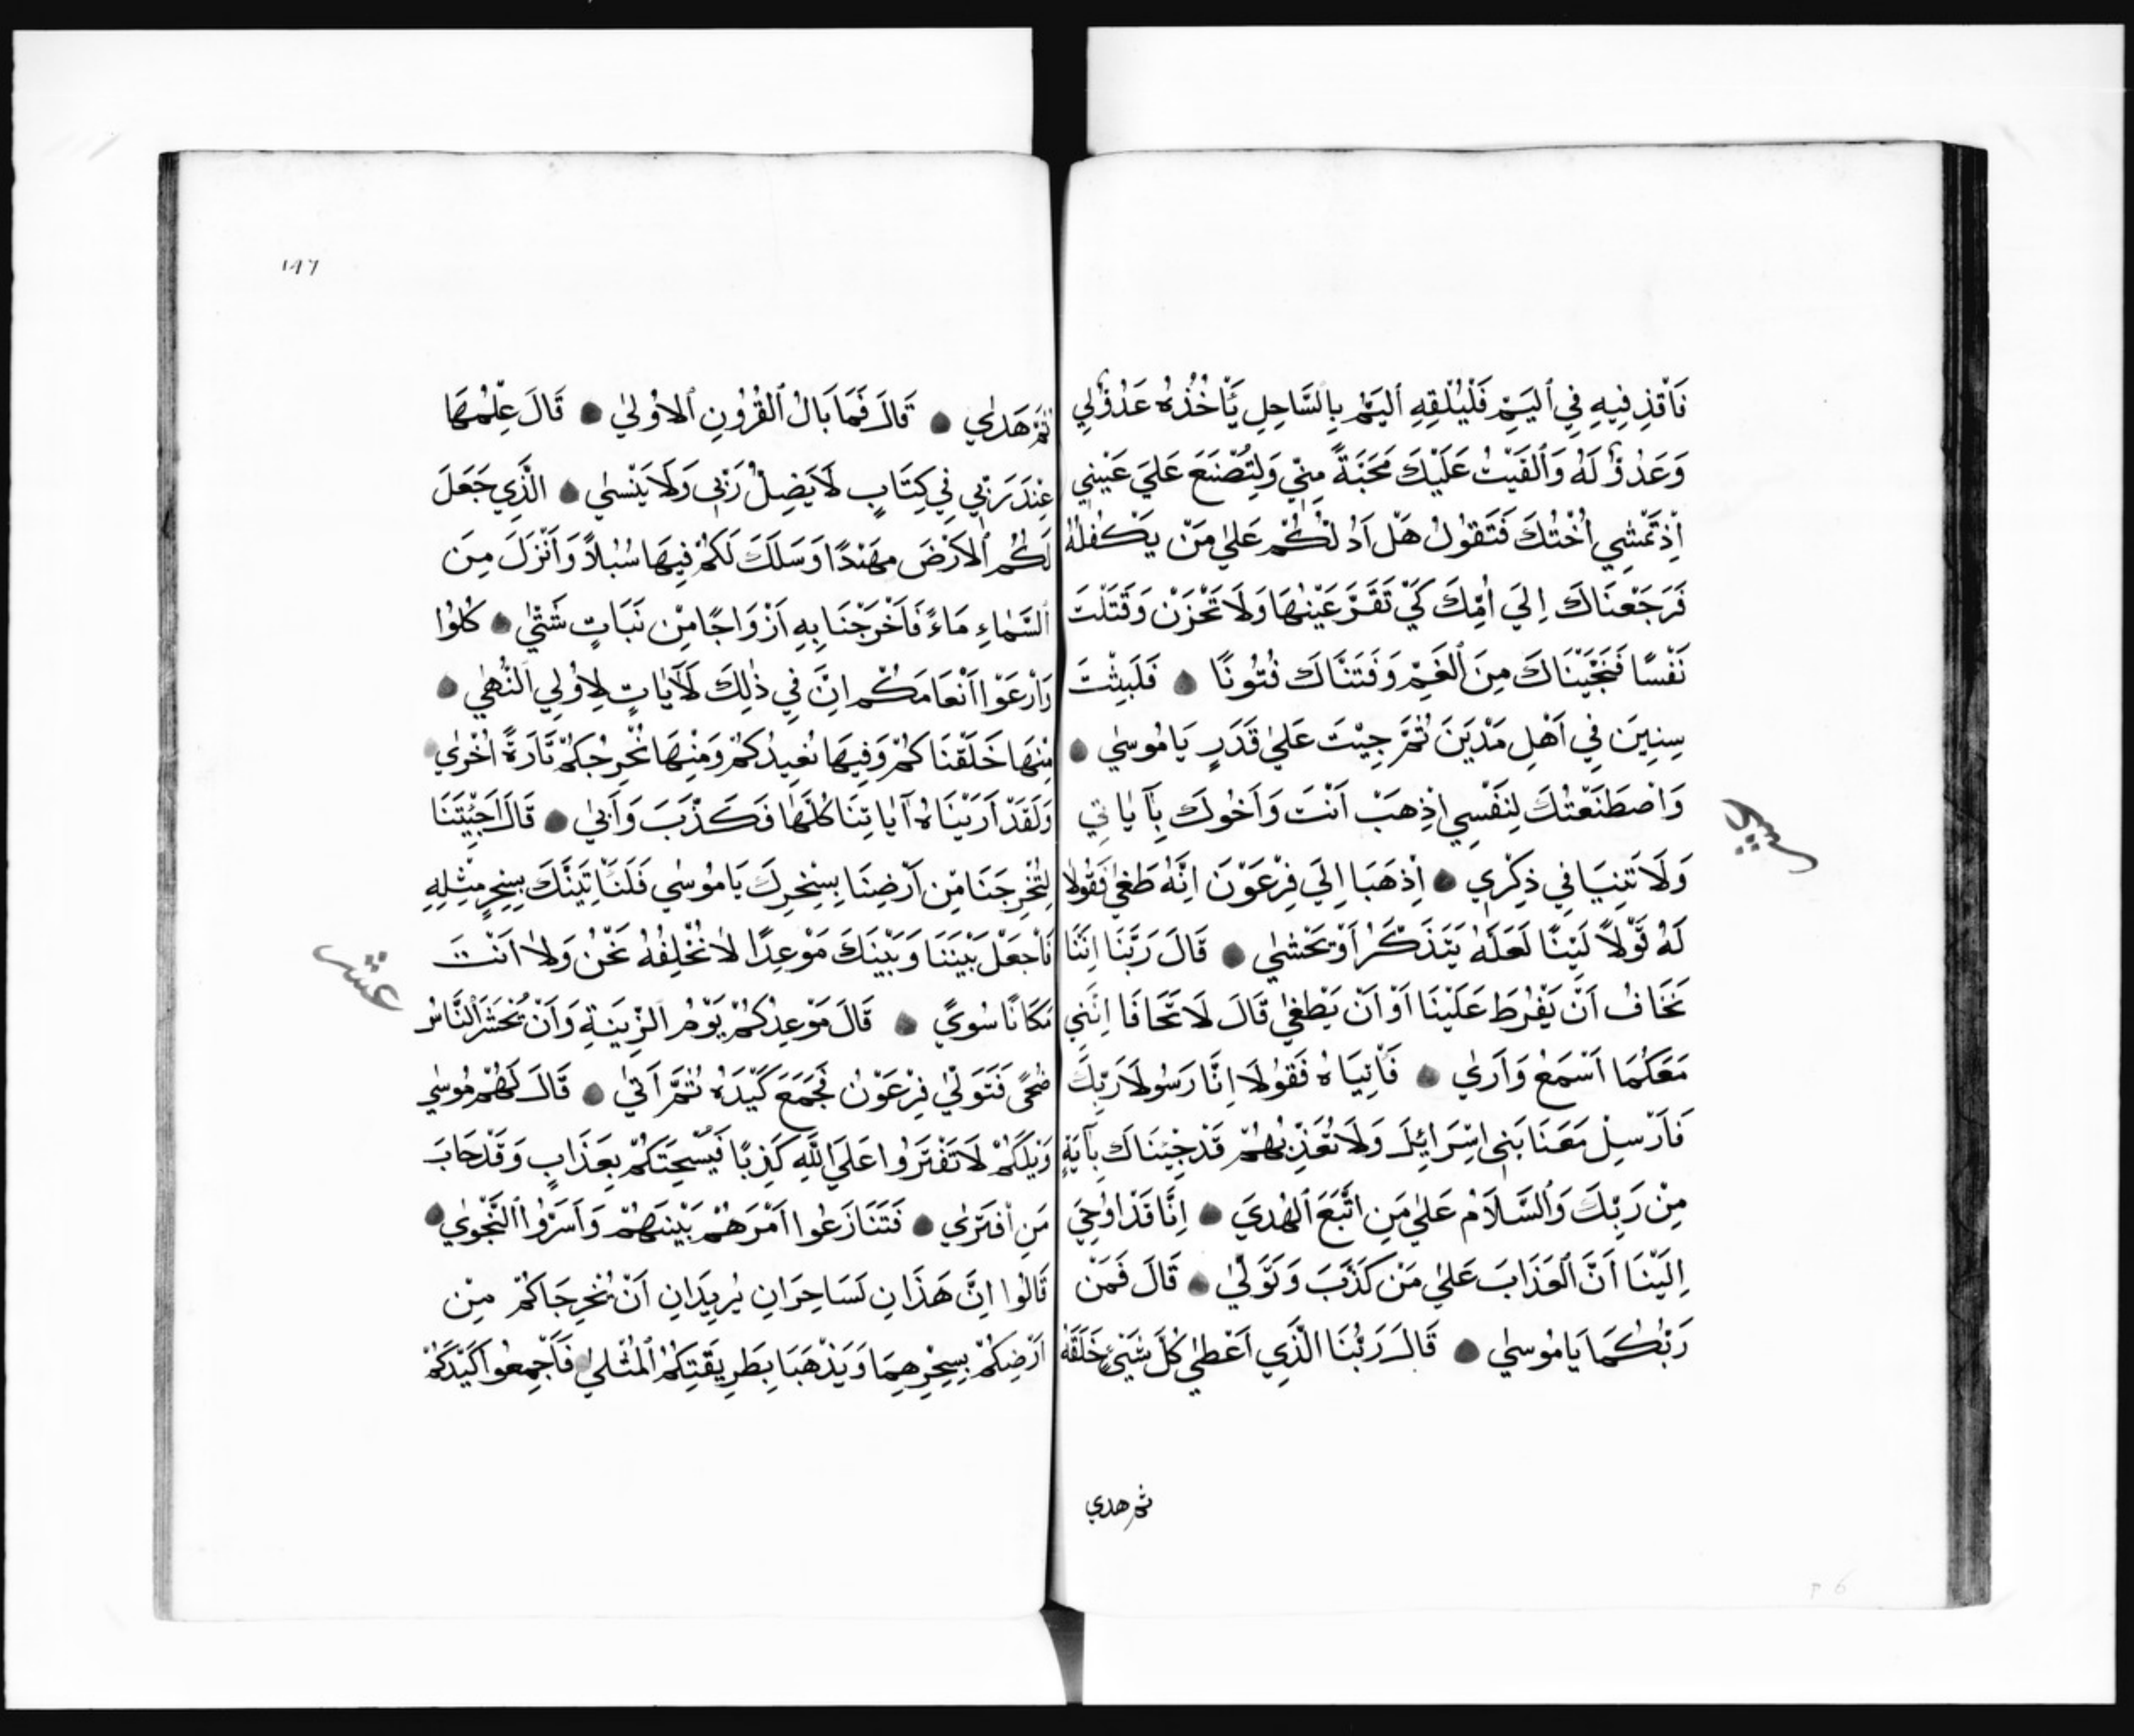 فَاقْذِفِيهِ فِي ٱليَمِّ فَلْيُلْقِهِ ٱليَمُّ بِالسَّاحِلِ يَأْخُذْهُ عَدُوٌّ لِي
وَعَدُوٌّ لَهُ وَٱلقَيْتُ عَلَيْكَ مَحَبَّةً مِنِّي وَلِتُصْنَعَ عَلَي عَيْنِي
اِذْ تَمْشِي اُخْتُكَ فَتَقُولُ هَلْ اَدُلُّكُمْ عَلٰي مَنْ يَكْفُلُهُ
فَرَجَعْنَاكَ اِلَي اُمِّكَ كَيْ تَقَرَّ عَيْنُهَا وَلَا تَحْزَنْ وَقَتَلْتَ
نَفْسًا فَنَجَّيْنَاكَ مِنَ ٱلغَمِّ وَفَتَنَّاكَ فُتُونًا فَلَبِثْتَ
سِنِينَ فِي اَهْلِ مَدْيَنَ ثُمَّ جِيْتَ عَلٰي قَدَرٍ يَا مُوسٰي
وَاصْطَنَعْتُكَ لِنَفْسِي اِذْهَبْ اَنْتَ وَاَخُوكَ بِآيَاتِي
وَلَا تَنِيَا فِي ذِكْرِي اِذْهَبَا اِلَي فِرْعَوْنَ اِنَّهُ طَغٰي فَقُولَا
لَهُ قَوْلًا لَيِّنًا لَعَلَّهُ يَتَذَكَّرُ اَوْ يَخْشٰي قَالَا رَبَّنَا اِنَّنَا
نَخَافُ اَنْ يَفْرُطَ عَلَيْنَا اَوْ اَنْ يَطْغٰي قَالَ لَا تَخَافَا اِنَّنِي
مَعَكُمَا اَسْمَعُ وَاَرٰي فَأْتِيَاهُ فَقُولَا اِنَّا رَسُولَا رَبِّكَ
فَاَرْسِلْ مَعَنَا بَنِي اِسْرَائِلَ وَلَا تُعَذِّبْهُمْ قَدْ جِئْنَاكَ بِآيَةٍ
مِنْ رَبِّكَ وَٱلسَّلَامُ عَلٰي مَنِ اتَّبَعَ ٱلهُدَي اِنَّا قَدْ اُوحِيَ
اِلَيْنَا اَنَّ ٱلعَذَابَ عَلٰي مَنْ كَذَّبَ وَتَوَلّٰي قَالَ فَمَنْ
رَبُّكُمَا يَا مُوسٰي قَالَ رَبُّنَا الَّذِي اَعْطٰي كُلَّ شَيْءٍ خَلَقَهُ
ثم هدي
١٩٦
ثُمَّ هَدٰي قَالَ فَمَا بَالُ ٱلقُرُونِ ٱلاُولٰي قَالَ عِلْمُهَا
عِنْدَ رَبِّي فِي كِتَابٍ لَا يَضِلُّ رَبِّي وَلَا يَنْسٰي الَّذِي جَعَلَ
لَكُمُ ٱلاَرْضَ مَهْدًا وَسَلَكَ لَكُمْ فِيهَا سُبُلًا وَاَنْزَلَ مِنَ
ٱلسَّمَاءِ مَاءً فَاَخْرَجْنَا بِهِ اَزْوَاجًا مِنْ نَبَاتٍ شَتّٰي كُلُوا
وَارْعَوْا اَنْعَامَكُمْ اِنَّ فِي ذٰلِكَ لَآيَاتٍ لِاُولِي ٱلنُّهٰي
مِنْهَا خَلَقْنَاكُمْ وَفِيهَا نُعِيدُكُمْ وَمِنْهَا نُخْرِجُكُمْ تَارَةً اُخْرٰي
وَلَقَدْ اَرَيْنَاهُ آيَاتِنَا كُلَّهَا فَكَذَّبَ وَاَبٰي قَالَ اَجِئْتَنَا
لِتُخْرِجَنَا مِنْ اَرْضِنَا بِسِحْرِكَ يَا مُوسٰي فَلَنَأْتِيَنَّكَ بِسِحْرٍ مِثْلِهِ
فَاجْعَلْ بَيْنَنَا وَبَيْنَكَ مَوْعِدًا لَا نُخْلِفُهُ نَحْنُ وَلَا اَنْتَ
عشر
مَكَانًا سُوًي قَالَ مَوْعِدُكُمْ يَوْمُ ٱلزِّينَةِ وَاَنْ يُحْشَرَ ٱلنَّاسُ
ضُحًي فَتَوَلّٰي فِرْعَوْنُ فَجَمَعَ كَيْدَهُ ثُمَّ اَتٰي قَالَ لَهُمْ مُوسٰي
وَيْلَكُمْ لَا تَفْتَرُوا عَلَي اللَّهِ كَذِبًا فَيُسْحِتَكُمْ بِعَذَابٍ وَقَدْ خَابَ
مَنِ افْتَرٰي فَتَنَازَعُوا اَمْرَهُمْ بَيْنَهُمْ وَاَسَرُّوا ٱلنَّجْوٰي
قَالُوا اِنَّ هَذَانِ لَسَاحِرَانِ يُرِيدَانِ اَنْ يُخْرِجَاكُمْ مِنْ
اَرْضِكُمْ بِسِحْرِهِمَا وَيَذْهَبَا بِطَرِيقَتِكُمُ ٱلمُثْلٰي فَاَجْمِعُوا كَيْدَكُمْ